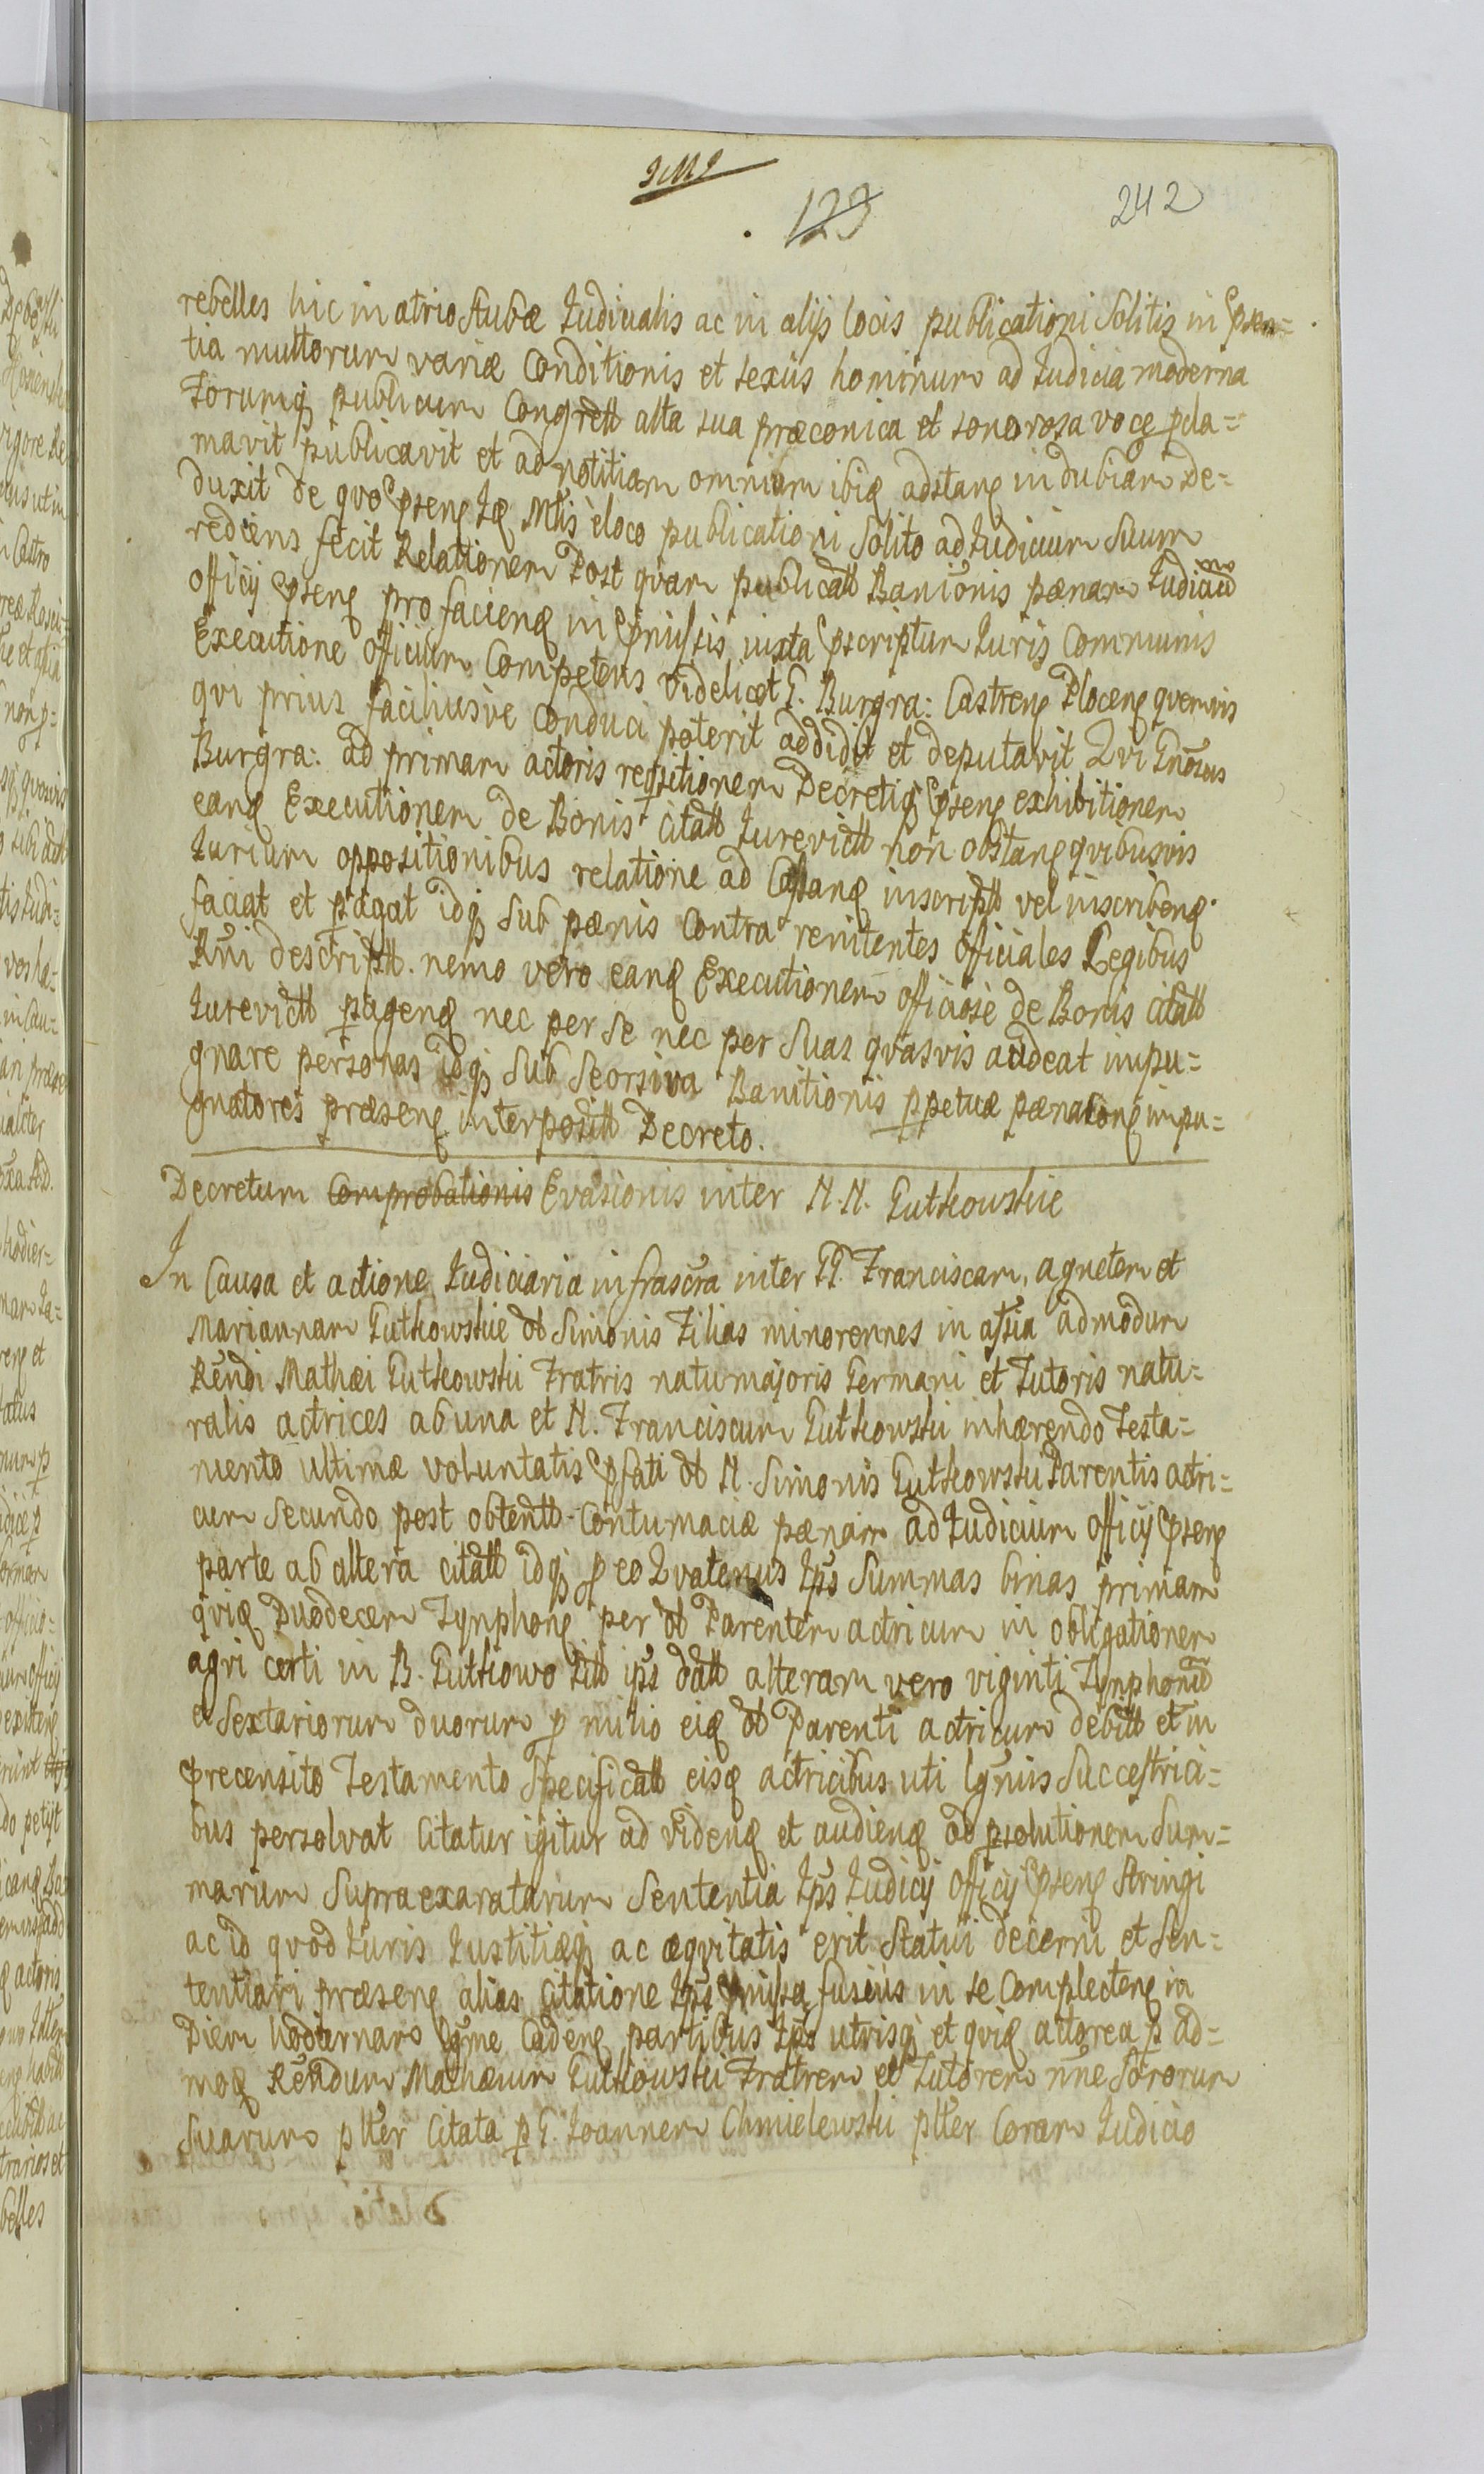 JMJ
123
242
rebelles hic in atrio stubæ Judicialis ac in alijs locis publicationi solitis in Præsen=
tia multorum variæ Conditionis et sexûs hominum ad Judicia moderna
Forumq publicum Congrett alta sua præconica et sonorosa voce pcla=
mavit publicavit et ad notitiam omnium ibiq adstanq indubiam de=
duxit de qvo Psenq Jq Mtis è loco publicationi solito ad Judicium suum
rediens fecit Relationem Post qvam publicatt Banionis pænam Judicium
officij Psenq pro facienq in Pmissis iuxta Pscriptum Juris Communis
Executione officium Competens videlicet G. Burgra: Castrenq Plocenq qvemvis
qvi prius faciliusve Conduci poterit addidit et deputavit Qvi Gnosus
Burgra: ad primam actoris reqsitionem Decretiq Psenq exhibitionem
eanq Executionem de Bonis Citatt Jurevictt non obstanq qvibusvis
Jurium oppositionibus relatione ad Capanq inscriptt vel inscribenq
faciat et pagat idq sub pænis contra renitentes officiales Legibus
Rni descriptt. nemo vero eanq Executionem officiose de Bonis Citatt
Jurevictt pagenq nec per se nec per suas qvasvis audeat impu=
gnare personas idq sub seorsiva Banitionis ppetuæ pæna conq impu=
gnatores præsenq interpositt Decreto.
Decretum Comprobationis Evasionis inter N.N. Gutkowskie
In Causa et actione Judiciaria infrascra inter GG. Franciscam, agnetem et
Mariannam Gutkowskie dt Simonis Filias minorennes in assia admodum
Rendi Mathæi Gutkowski Fratris natu majoris Germani et Tutoris natu=
ralis actrices ab una et N. Franciscum Gutkowski inhærendo Testa=
mento ultimæ voluntatis Pfati dt N. Simonis Gutkowski Parentis actri=
cum secundo post obtentt Contumaciæ pænam ad Judicium officij Psenq
parte ab altera citatt idq p eo Qvatenus Jps Summas binas primam
qviq Duodecem Tynphonq per dt Parentem actricum in obligationem
agri certi in B. Gutkowo sitt ips datt alteram vero viginti Tynphonum
et sextariorum duorum p milio eiq dt Parenti actricum debitt et in
Precensito Testamento Specificatt eisq actricibus uti Lgmis Successtrici=
bus persolvat Citatur igitur ad videnq et audienq ad psolutionem sum=
marum supraexaratarum Sententia Jps Judicij officij Psenq Stringi
ac id qvod Juris Justitiæq ac æqvitatis erit statui decerni et sen=
tentiari præsenq alias Citatione Jps Pmissa fusius in se Complectenq in
Diem hodiernam Lgme Cadenq partibus Jps utrisq et qviq actorea p ad=
moq Rendum Mathæum Gutkowski Fratrem et Tutorem nne Sororum
suarum plter Citata p G. Joannem Chmielewski plter Coram Judicio